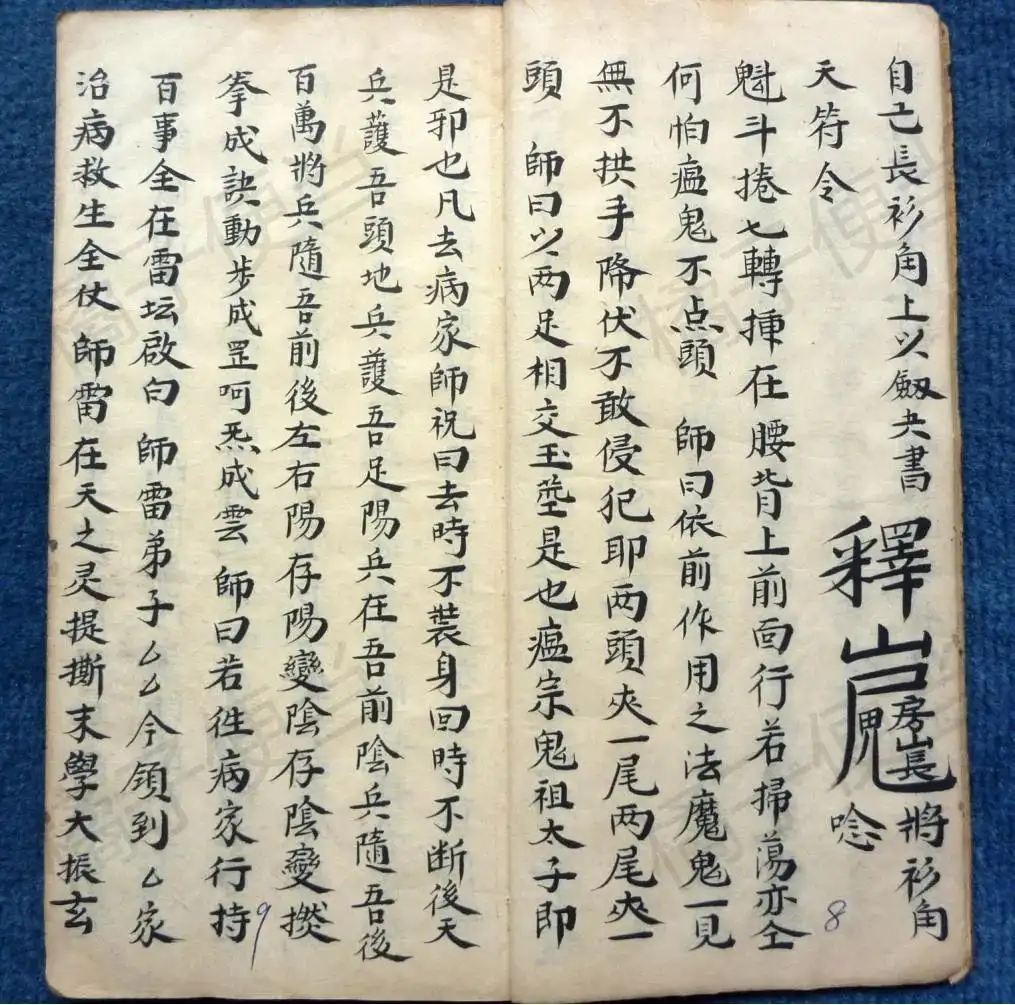 自己長衫角上以劔夬書
釋
房長
將衫角
天符令
唸
魁斗捲七轉挿在腰背上前面行若掃蕩亦仝
何怕瘟鬼不点頭 師曰依前作用之法魔鬼一見
無不拱手降伏不敢侵犯耶兩頭夾一尾兩尾夾一
頭 師曰以两足相交玉莖是也瘟宗鬼祖太子即
8
是邪也凡去病家師祝曰去時不裝身回時不断後天
兵護吾頭地兵護吾足陽兵在吾前陰兵隨吾後
百萬將兵隨吾前後左右陽存陽變陰存陰變撚
拳成訣動步成罡呵炁成雲 師曰若往病家行持
百事全在雷坛啟白 師雷弟子厶厶今領到厶家
治病救生全仗 師雷在天之灵提撕末學大振玄
9